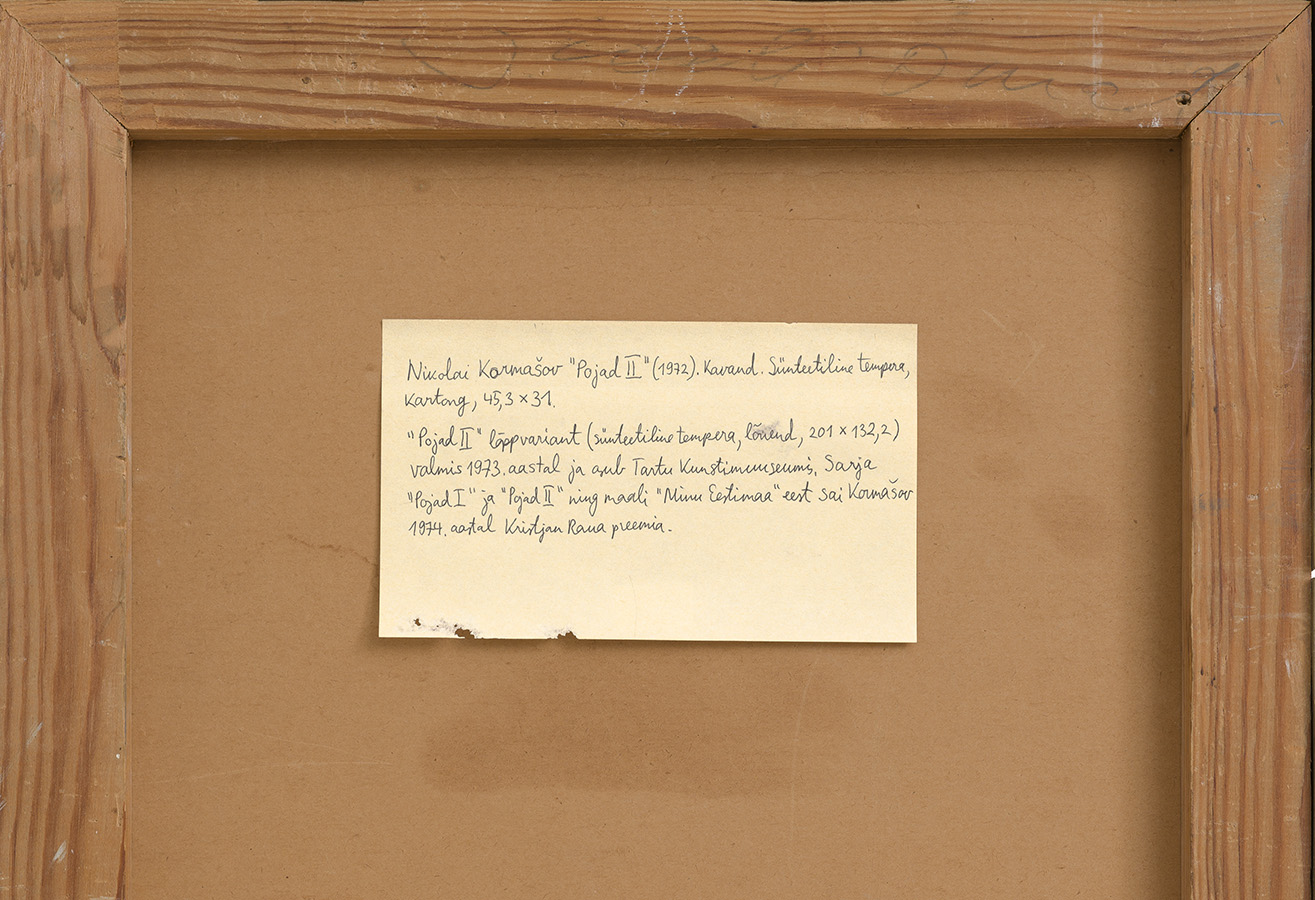 Nikolai Kormašov "Pojad II" (1972). Kavand. Sünteetiline tempera,
kartong, 45,3 × 31.
"Pojad II" lõppvariant (sünteetiline tempera, lõuend, 201 × 132,2)
valmis 1973. aastal ja asub Tartu Kunstimuuseumis. Sarja
"Pojad I" ja "Pojad II" ning maali "Minu Eestimaa" eest sai Kormašov
1974. aastal Kristjan Raua preemia.